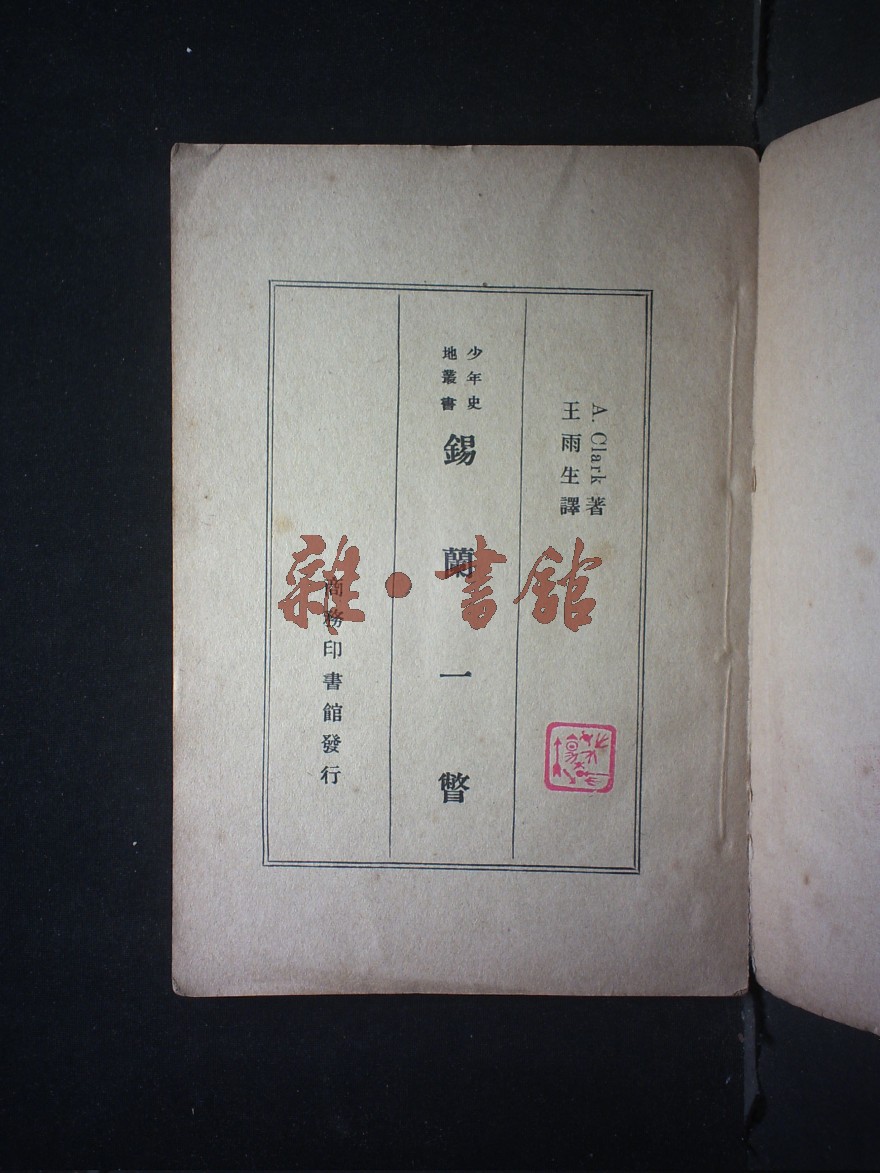 A. Clark 著
王雨生譯
少年史
地叢書
錫蘭一瞥
商務印書館發行
雜·書館